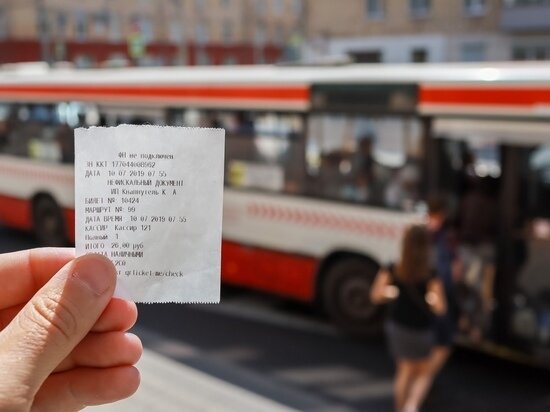 ФН не подключен
ЗН ККТ 177044008962
ДАТА 10 07 2019 07 55
НЕФИСКАЛЬНЫЙ ДОКУМЕНТ
ИП Клапнутель К А
БИЛЕТ № 10424
МАРШРУТ № 99
ДАТА ВРЕМЯ 10 07 2019 07 55
КАССИР Кассир 121
Полный 1
ИТОГО 26,00 руб
НАЛИЧНЫМИ
qrticket.me/check